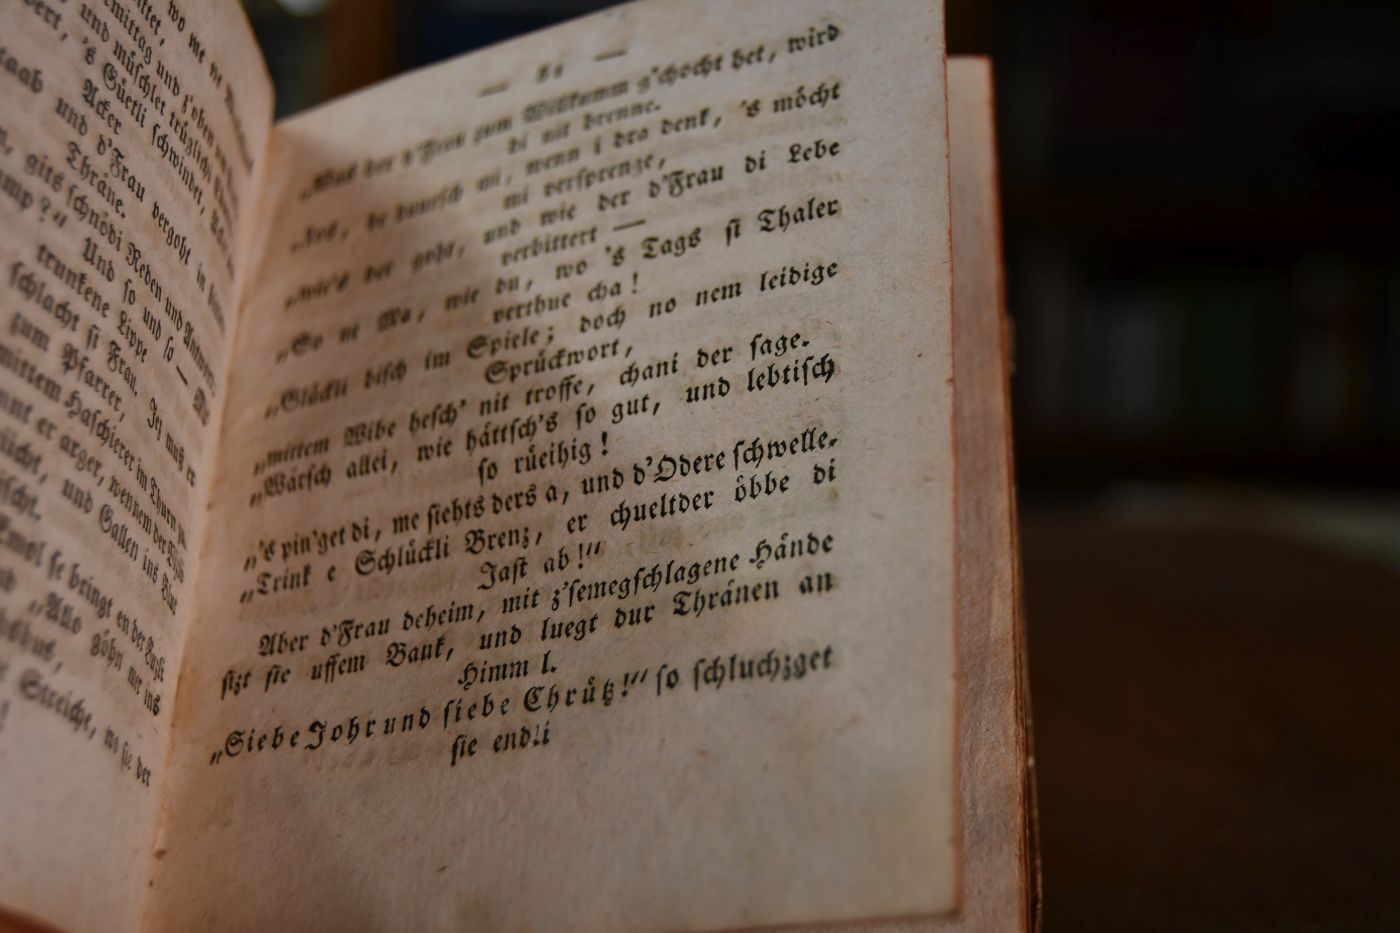 wo me ne
und z'oben
und müschlet trüzlichi
's Güetli schwindet,
Acker
und d'Frau vergoht in
Thräne.
gits schnödi Reden und Antwort.
Und so und so —
trunkene Lippe
schlacht si Frau. Jez mus er
zum Pfarrer,
mittem Haschierer im Thurn
er arger, wennem der
und Gallen ins Blut
se bringt en der
„Allo göhn mer ins
Streiche, wo sie der
— 81 —
„Was der d'Frau zum Willkumm g'chocht het, wird
di nit brenne.
„Los, de duursch mi, wenn i dra denk, 's möcht
mi versprenze,
„wie's der goht, und wie der d'Frau di Lebe
verbittert —
„So ne Ma, wie du, wo 's Tags si Thaler
verthue cha!
„Glückli bisch im Spiele; doch no nem leidige
Sprückwort,
„mittem Wibe hesch' nit troffe, chani der sage.
„Wärsch allei, wie hättsch's so gut, und lebtisch
so rüeihig!
„'s pin'get di, me siehts ders a, und d'Odere schwelle.
„Trink e Schlückli Brenz, er chueltder öbbe di
Jast ab!“
Aber d'Frau deheim, mit z'semegschlagene Hände
sizt sie uffem Bauk, und luegt dur Thränen an
Himm l.
„Siebe Johr und siebe Chrütz!“ so schluchzget
sie endli